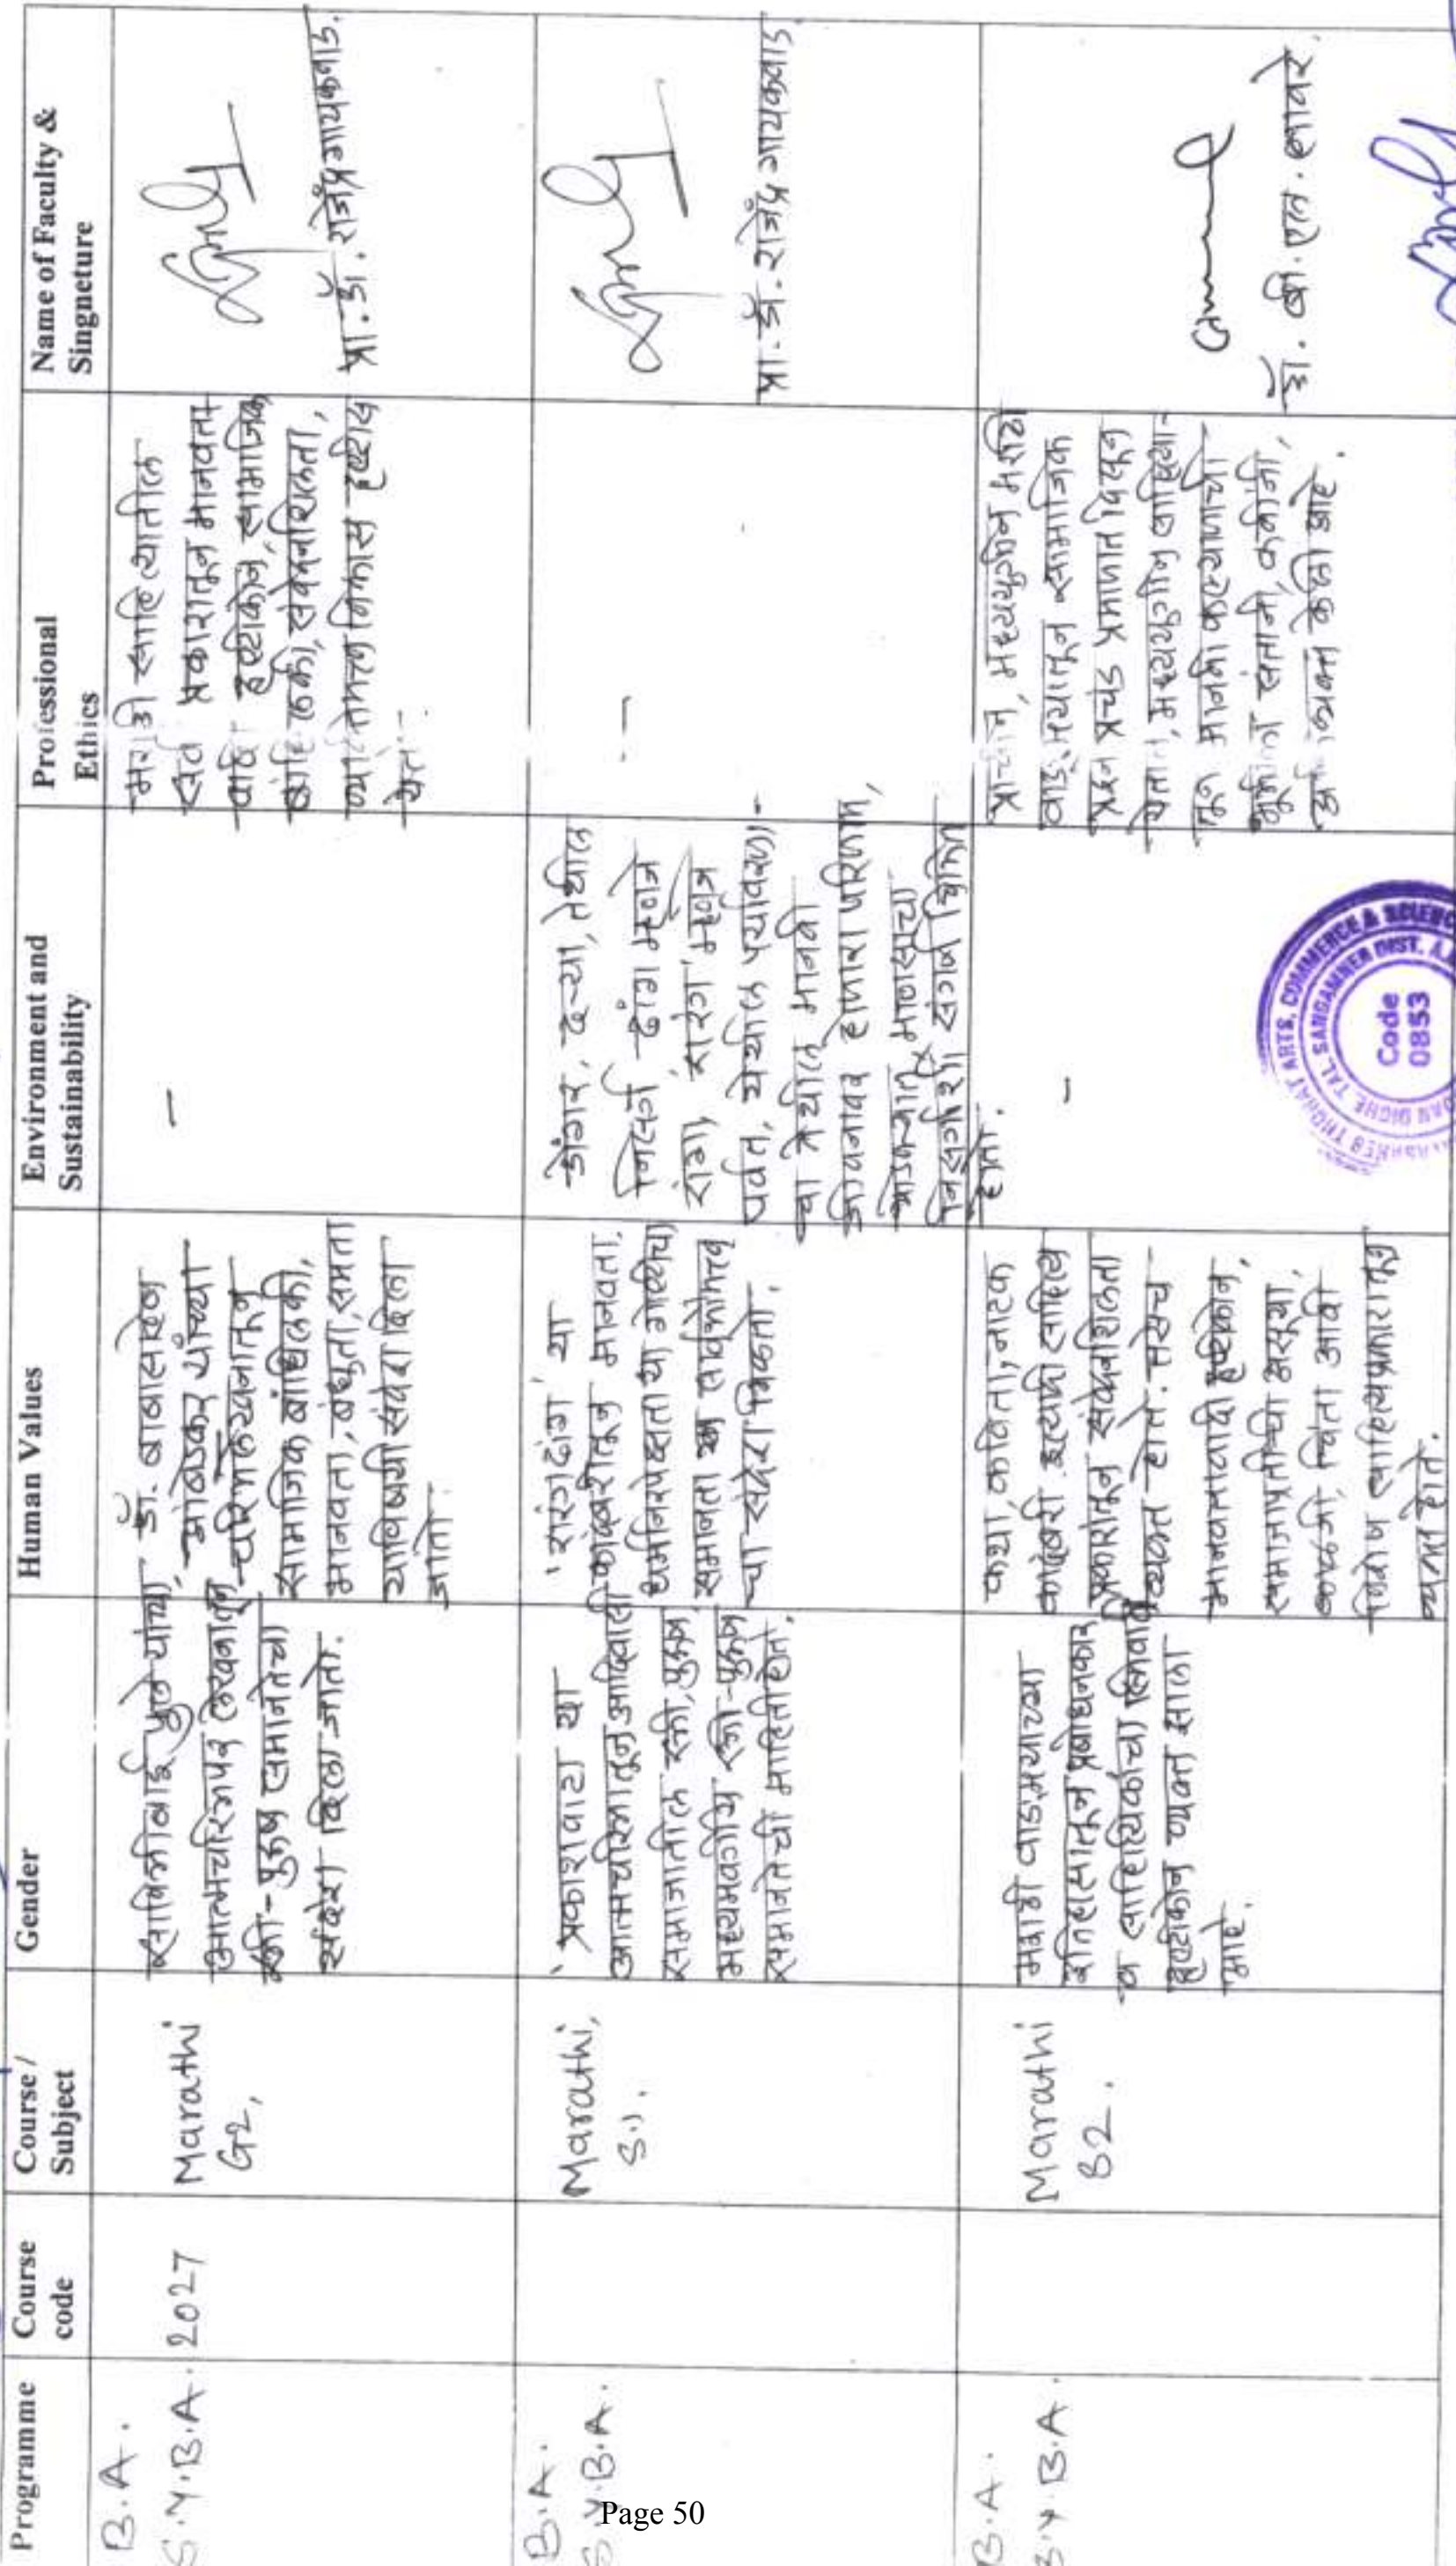 Programme
Course
code
Course /
Subject
Gender
Human Values
Environment and
Sustainability
Professional
Ethics
Name of Faculty &
Singneture
B.A.
S.Y.B.A.
2027
Marathi
G2,
सावित्रीबाई फुले यांच्या
आत्मचरित्रपर लेखनातून
स्त्री-पुरुष समानतेचा
संदेश दिला जातो.
डॉ. बाबासाहेब
आंबेडकर यांच्या
चरित्रलेखनातून
सामाजिक बांधिलकी,
मानवता, बंधुता, समता
याविषयी संदेश दिला
जातो.
–
मराठी साहित्यातील
सर्व प्रकारातून मानवता
वादी दृष्टीकोन, सामाजिक
बांधिलकी, संवेदनशिलता,
विकास
येतो.
प्रा. डॉ. राजेंद्र गायकवाड.
B.A.
S.Y.B.A.
Marathi,
S.1.
'प्रकाशवाटा' या
आत्मचरित्रातून आदिवासी
समाजातील स्त्री, पुरुष
मध्यमवर्गीय स्त्री-पुरुष
समानतेची माहिती होते.
'सारंगढंगा' या
कादंबरीतून मानवता,
धर्मनिरपेक्षता या
समानता
चा संदेश मिळतो.
डोंगर, दऱ्या, तेथील
निसर्ग ढंग म्हणजे
रांगा, सारंग म्हणजे
पर्वत, येथील पर्यावरणा-
चा येथील मानवी
जीवनावर होणारा परिणाम,
माणसाचा
निसर्गाशी संघर्ष चित्रित
होतो.
–
प्रा. डॉ. राजेंद्र गायकवाड.
B.A.
S.Y.B.A.
Marathi
S2.
मराठी वाङ्मयाच्या
इतिहासातून प्रबोधनकार
व साहित्यिकांचा
दृष्टीकोन व्यक्त झाला
आहे.
कथा, कविता, नाटक
कादंबरी इत्यादी साहित्य
प्रकारातून संवेदनशिलता
व्यक्त होते. तसेच
मानवतावादी दृष्टीकोन,
समाजाप्रतीची
काळजी, चिंता आदी
साहित्यप्रकारातून
व्यक्त होते.
–
प्राचीन, मध्ययुगीन मराठी
वाङ्मयातून सामाजिक
प्रश्न प्रचंड प्रमाणात दिसून
येतात, मध्ययुगीन साहित्या-
तून मानवी कल्याणाची
भूमिका संतांनी, कवींनी,
व्यक्त केली आहे.
डॉ. बी. एल.
ARTS, COMMERCE & SCIENCE
TAL. SANGAMNER DIST. A.
Code
0853
Page 50